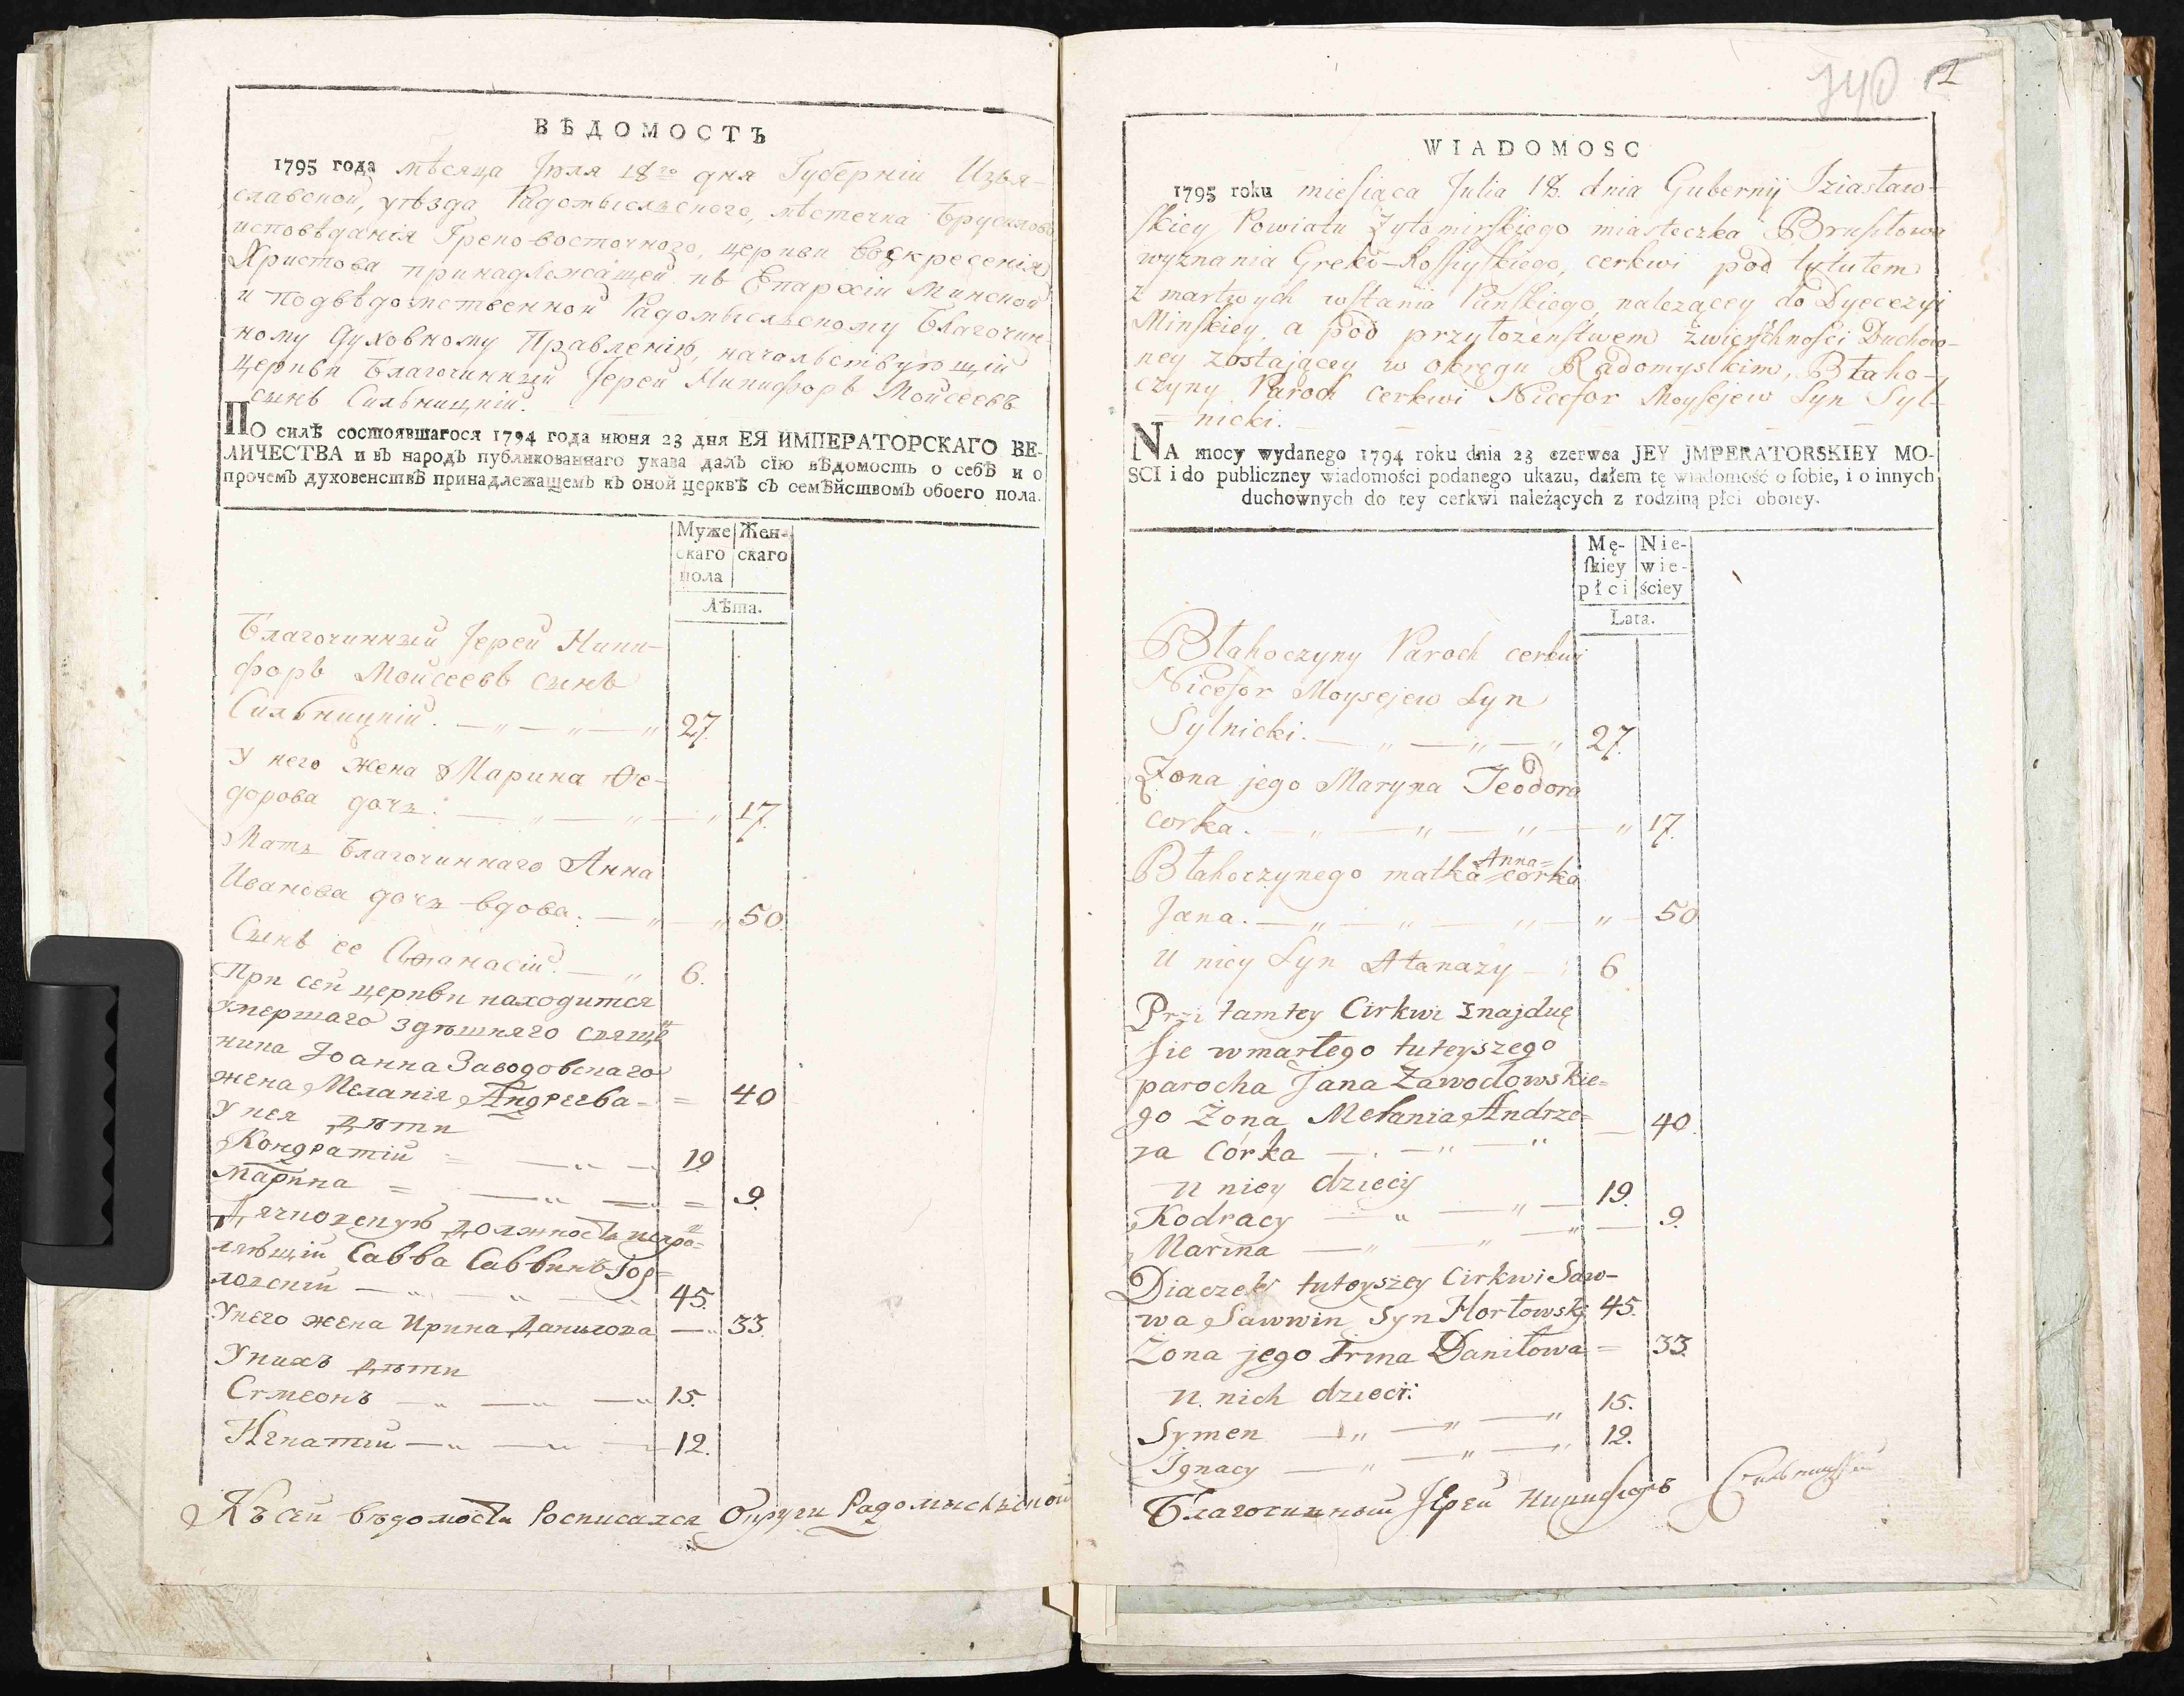 ВѢДОМОСТЬ
1795 года мѣсяца Іюля 18го дня Губерніи Изья-
славской, уѣзда Радомысльского, мѣстечка Брусилова
исповѣданія Греко-восточного, церкви Воскресенія
Христова принадлежащей къ Епархіи Минской
и подвѣдомственной Радомысльскому Благочин-
ному Духовному Правленію, начальствующій
церкви Благочинный Іерей Никифоръ Мойсеевъ
сынъ Сильницкій.
ПО силѣ состоявшагося 1794 года июня 23 дня ЕЯ ИМПЕРАТОРСКАГО ВЕ-
ЛИЧЕСТВА и въ народъ публикованнаго указа далъ сїю вѣдомость о себѣ и о
прочемъ духовенствѣ принадлежащемъ къ оной церквѣ съ семѣйствомъ обоего пола.
Муже Жен-
скаго скаго
пола
Лѣта.
Благочинный Іерей Ники-
форъ Мойсеевъ сынъ
Сильницкій. 27.
У него жена Марина Ѳе-
дорова дочь: 17.
Мать Благочиннаго Анна
Иванова дочь вдова: 50.
Сынъ ее Аѳанасій. 6.
При сей церкви находится
умершаго здѣшняго свяще
ника Іоанна Заводовскаго
жена Меланія Андреева = = 40
У нея дѣти
Кондратій = 19
Марина = = 9.
Дячковскую должность испра=
ляющій Савва Саввинъ Гор=
ловскій 45.
У него жена Ирина Данилова 33.
У нихъ дѣти
Сѵмеонъ 15.
Игнатій 12.
Къ сей вѣдомости росписался Округи Радомысльской
740 2
WIADOMOSC
1795 roku miesiąca Julia 18. dnia Gubernij Iziasław-
skiey Powiatu Żytomirskiego miasteczka Brusiłowa
wyznania Greko-Rossiyskiego, cerkwi pod tytułem
z martwych wstania Pańskiego, należącey do Dyecezyi
Minskiey, a pod przyłożenstwem zwierzchności Duchow-
ney zostającey w okręgu Radomyslkim, Błaho-
czyny Paroch cerkwi Nicefor Moysejew Syn Syl-
nicki.
NA mocy wydanego 1794 roku dnia 23 czerwca JEY JMPERATORSKIEY MO-
SCI i do publiczney wiadomości podanego ukazu, dałem tę wiadomość o sobie, i o innych
duchownych do tey cerkwi należących z rodziną płci oboiey.
Mę- Nie-
skiey wie-
płci ściey
Lata.
Błahoczyny Paroch cerkwi
Nicefor Moysejew Syn
Sylnicki. 27.
Zona jego Maryna Teodora
corka. 17.
Anna=
Błahoczynego matka corka
Jana. 50
U niey Syn Atanazy 6
Przi tamtey Cirkwi znajduę
sie wmarłego tuteyszego
parocha Jana Zawodowskie=
go Żona Mełania Andrze= 40.
za Córka
u niey dziecy
Kodracy 19.
Marina 9.
Diaczek tuteyszey Cirkwi Saw-
wa Sawwin Syn Hortowskj 45.
Żona jego Irina Daniłowa = 33.
u nich dzieci:
Symen 15.
Ignacy 12.
Благочинный Іерей Никифоръ Сильницкій